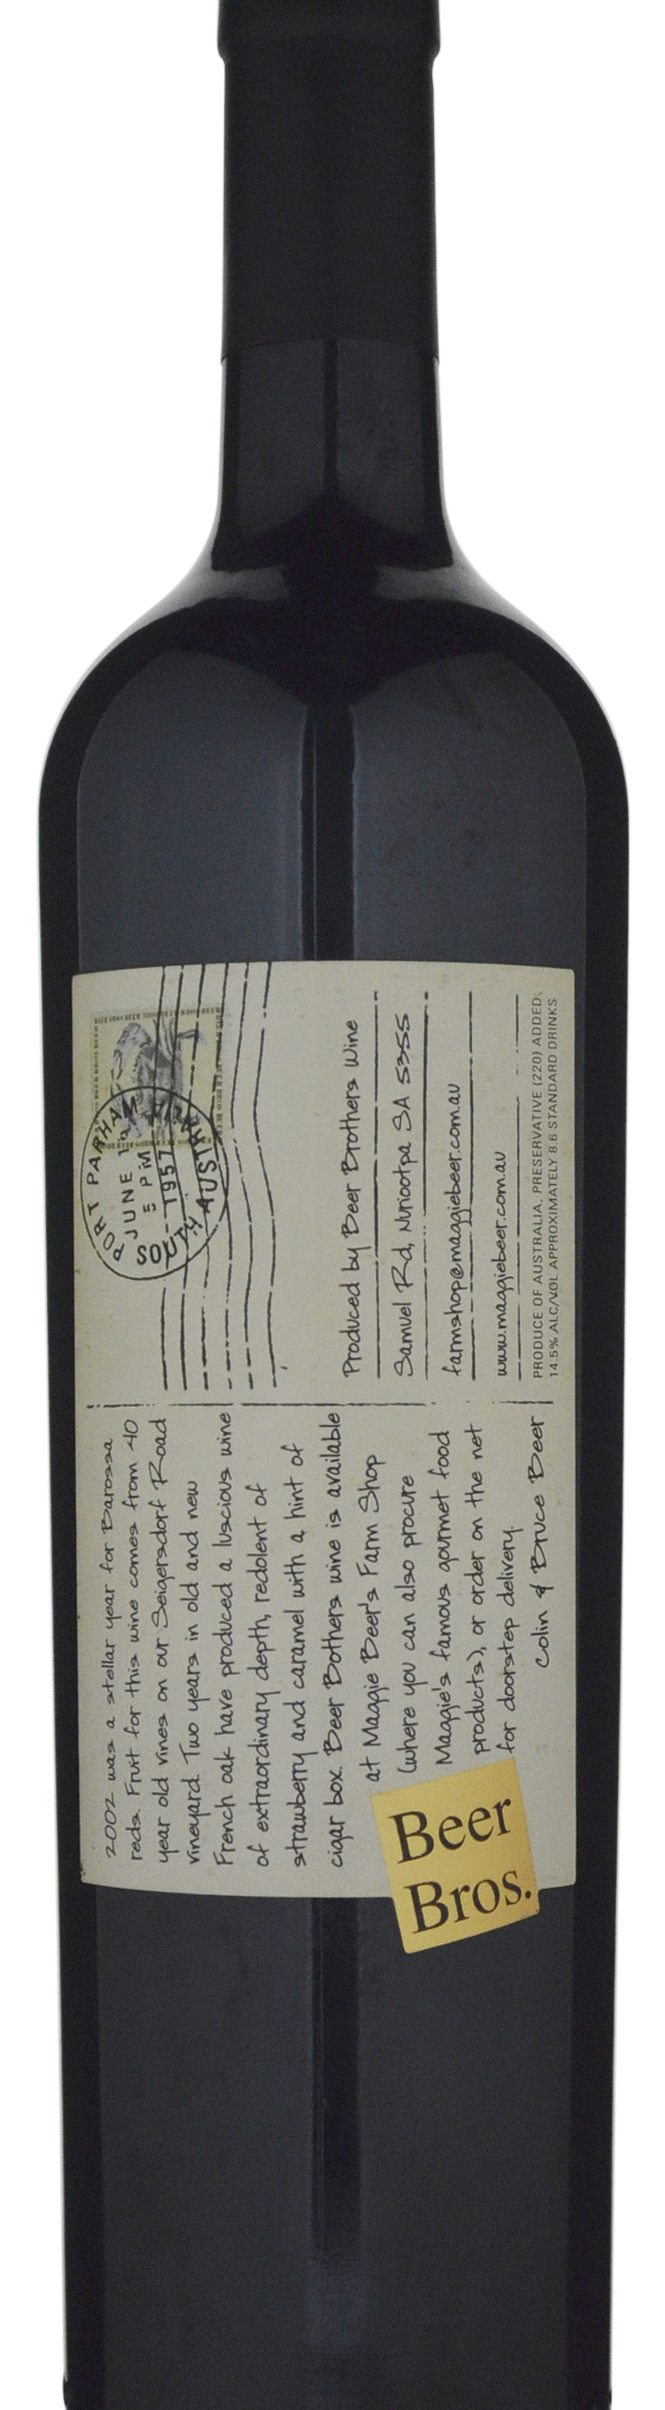 2002 was a stellar year for Barossa
reds. Fruit for this wine comes from 40
year old vines on our Seigersdorf Road
vineyard. Two years in old and new
French oak have produced a luscious wine
of extraordinary depth, redolent of
strawberry and caramel with a hint of
cigar box. Beer Bothers wine is available
at Maggie Beer's Farm Shop
(where you can also procure
Maggie's famous gourmet food
products), or order on the net
for doorstep delivery.
Colin & Bruce Beer
Beer
Bros.
PORT PARHAM
JUNE
5 PM
1957
SOUTH AUSTRALIA
Produced by Beer Brothers Wine
Samuel Rd, Nuriootpa SA 5355
farmshop@maggiebeer.com.au
www.maggiebeer.com.au
PRODUCE OF AUSTRALIA, PRESERVATIVE (220) ADDED:
14.5% ALC/VOL APPROXIMATELY 8.6 STANDARD DRINKS